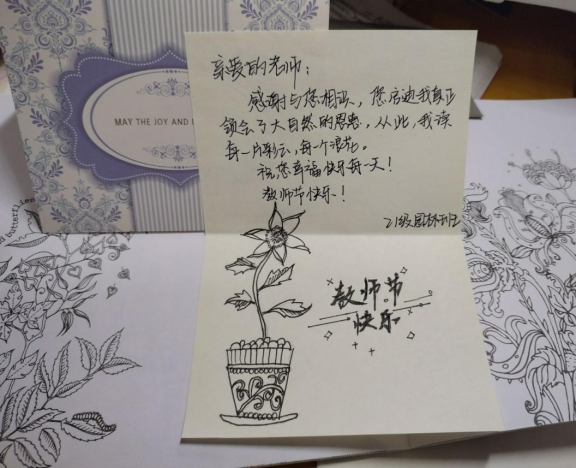 MAY THE JOY AND
butterflies
亲爱的老师：
感谢与您相识，您启迪我真正
领会了大自然的恩惠，从此，我读
每一片彩云，每一个浪花。
祝您幸福快乐每一天！
教师节快乐！
21级园林班
教师节
快乐